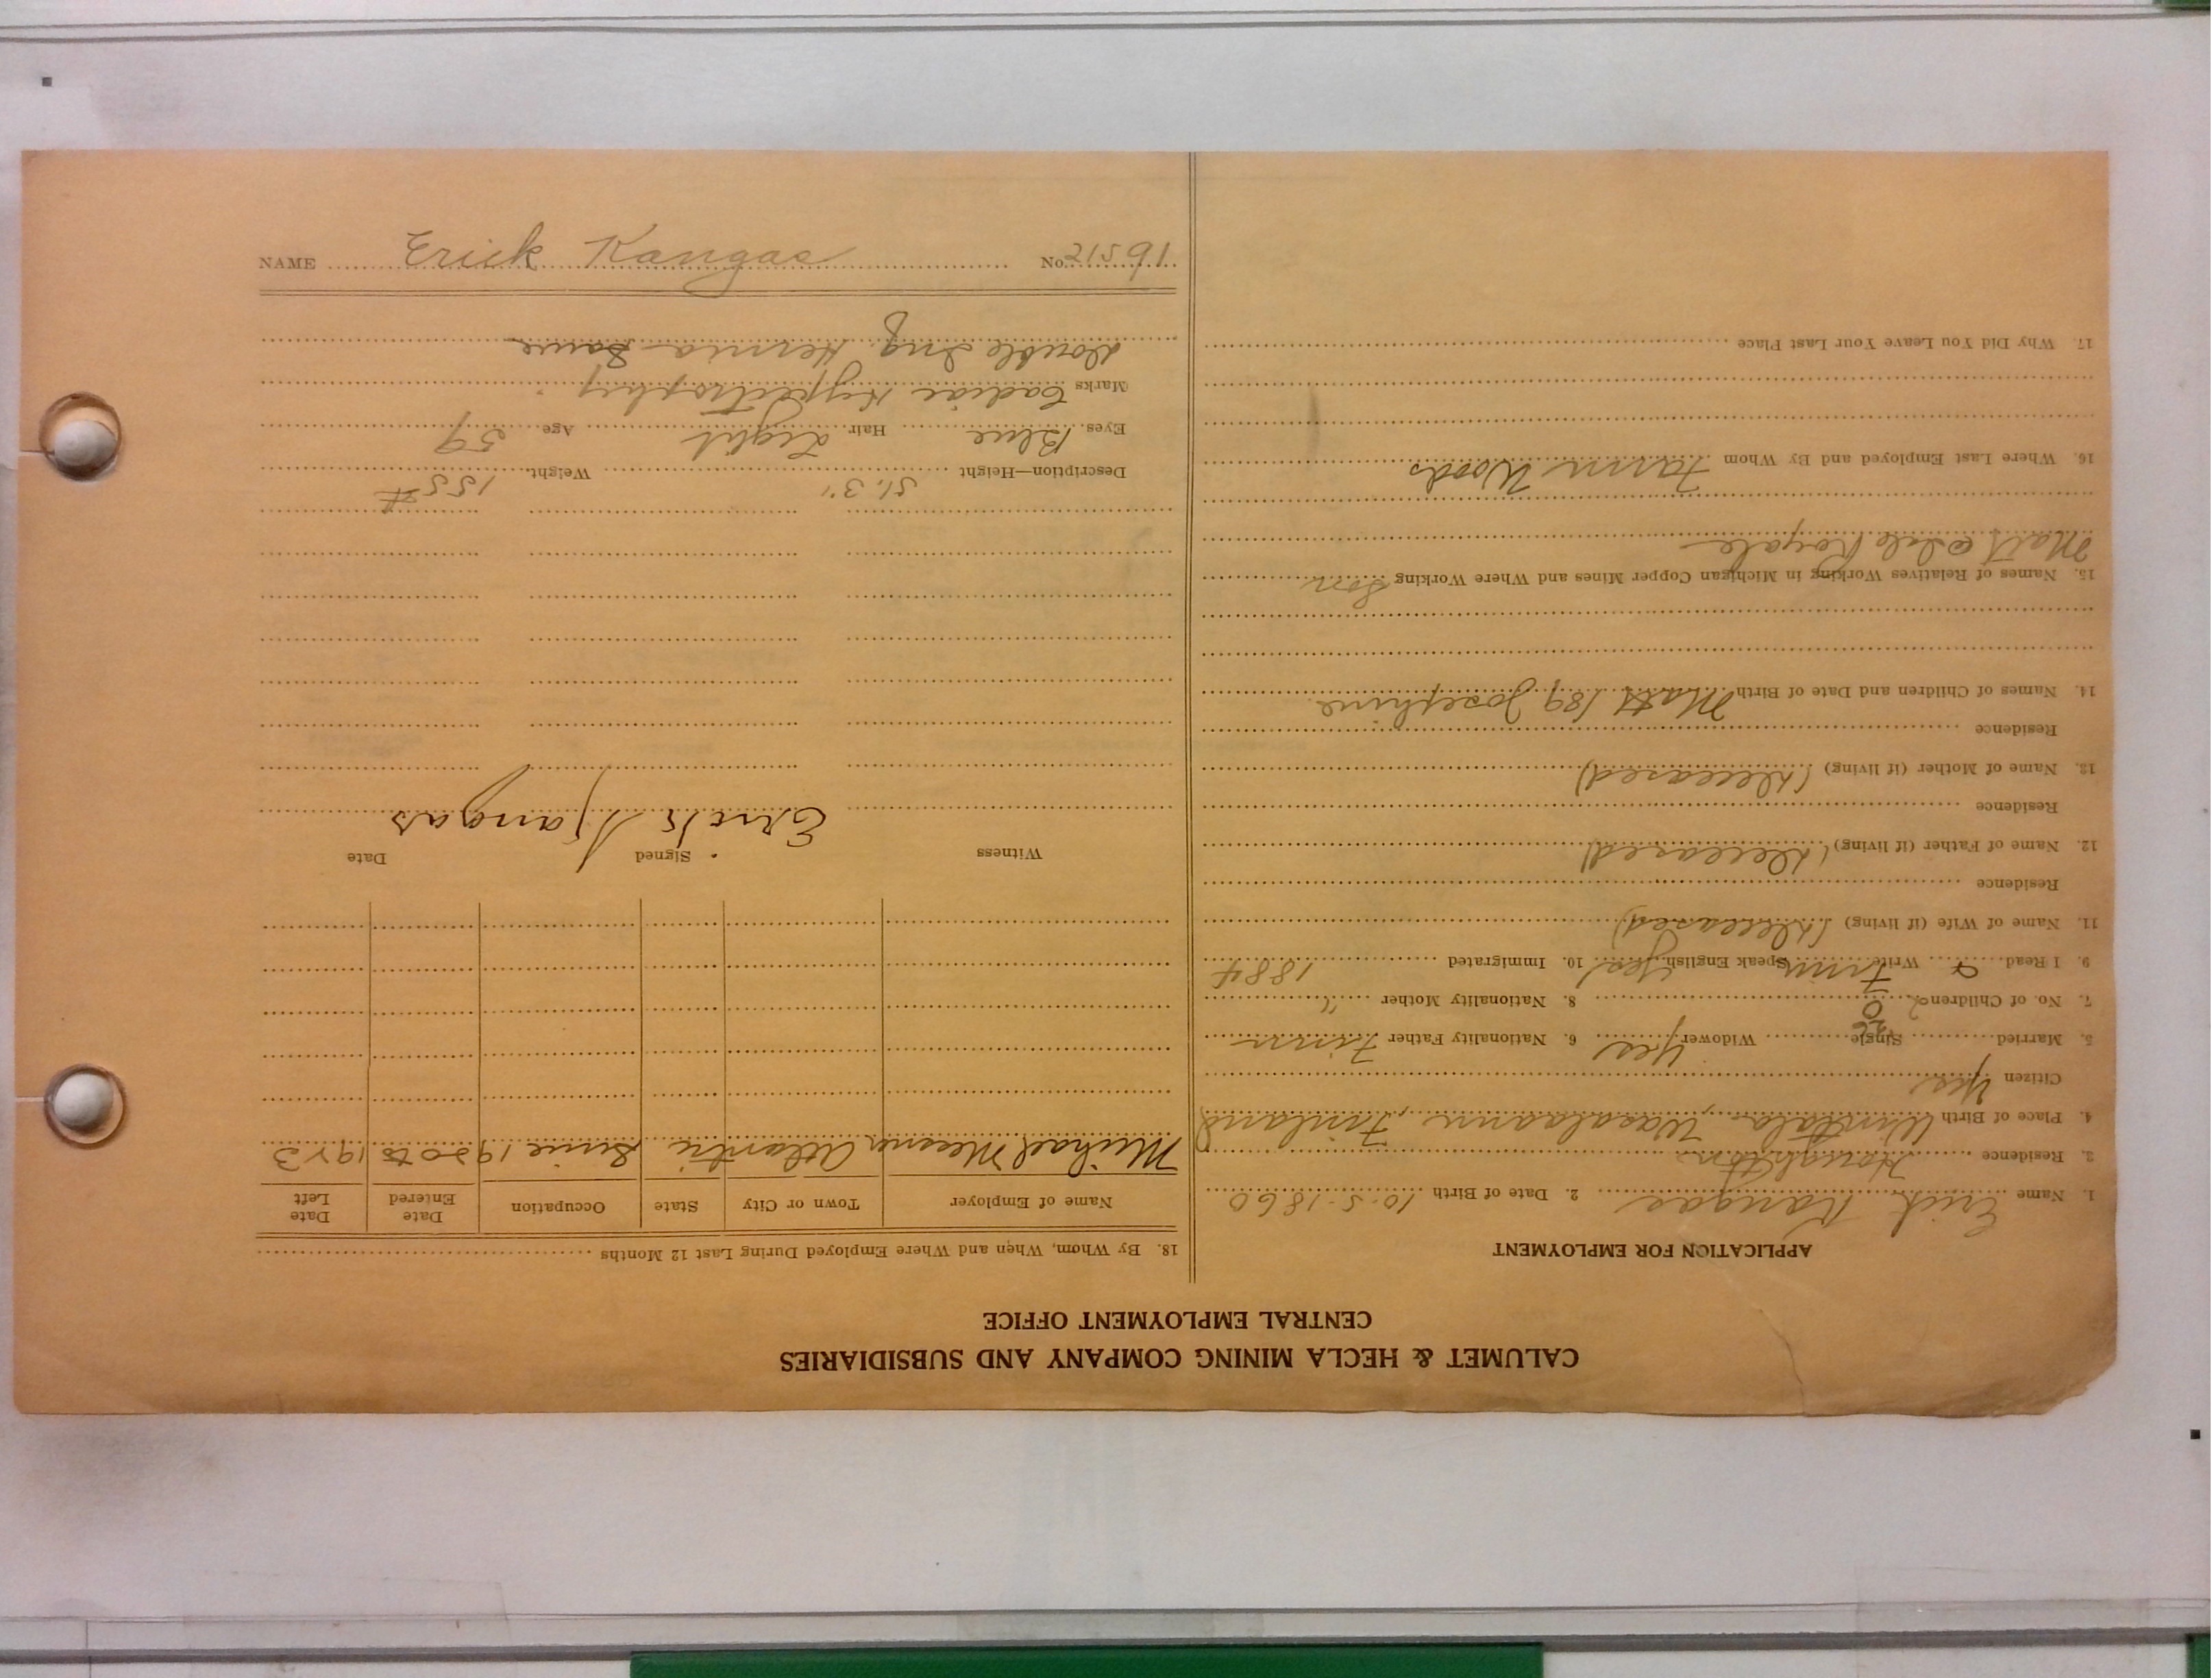 CALUMET & HECLA MINING COMPANY AND SUBSIDIARIES
CENTRAL EMPLOYMENT OFFICE
APPLICATION FOR EMPLOYMENT
1. Name Erick Kangas 2. Date of Birth 10-5-1860
3. Residence Houghton
4. Place of Birth Wasalaann, Finland
Citizen Yes
5. Married Single Widower Yes 6. Nationality Father Finn
7. No. of Children 2 8. Nationality Mother "
9. I Read & Write Finn Speak English Yes 10. Immigrated 1884
11. Name of Wife (if living) (Deceased)
Residence
12. Name of Father (if living) (Deceased)
Residence
13. Name of Mother (if living) (Deceased)
Residence
14. Names of Children and Date of Birth Matt 189 Josephine
15. Names of Relatives Working in Michigan Copper Mines and Where Working Son
Matt @ Isle Royale
16. Where Last Employed and By Whom Farm Woods
17. Why Did You Leave Your Last Place
18. By Whom, When and Where Employed During Last 12 Months
Name of Employer Town or City State Occupation Date Entered Date Left
Michael Messner Atlantic Since 1920 to 1923
Witness Signed Date
Erick Kangas
Description—Height 5'.3" Weight 155#
Eyes Blue Hair Light Age 59
Marks Cadiac Hypertrophy
Double Ing. Hernia
NAME Erick Kangas No. 21591